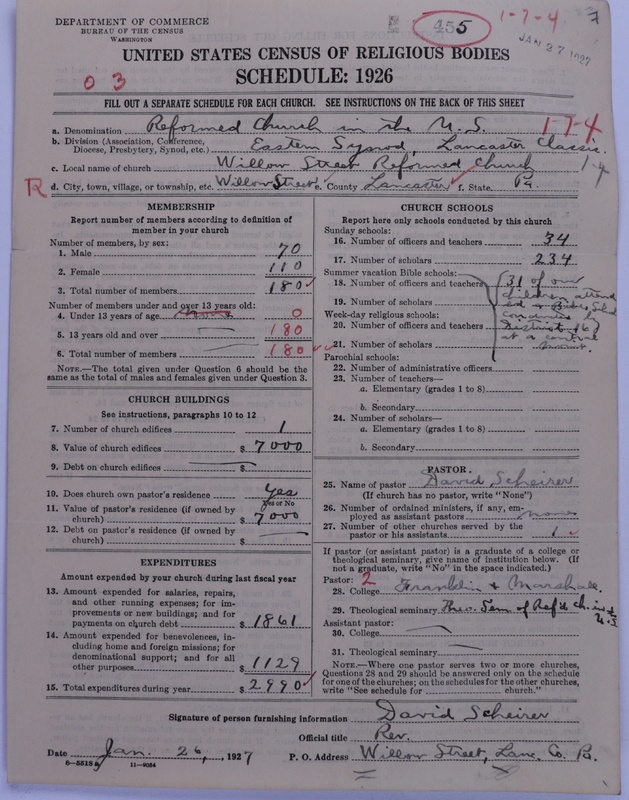 DEPARTMENT OF COMMERCE
BUREAU OF THE CENSUS
WASHINGTON
455
1-7-4
JAN 27 1927
UNITED STATES CENSUS OF RELIGIOUS BODIES
SCHEDULE: 1926
03
FILL OUT A SEPARATE SCHEDULE FOR EACH CHURCH. SEE INSTRUCTIONS ON THE BACK OF THIS SHEET
a. Denomination Reformed Church in the U.S. 1-7-4
b. Division (Association, Conference, Diocese, Presbytery, Synod, etc.) Eastern Synod, Lancaster Classis.
c. Local name of church Willow Street Reformed Church 1-4
R d. City, town, village, or township, etc. Willow Street e. County Lancaster f. State Pa.
MEMBERSHIP
Report number of members according to definition of
member in your church
Number of members, by sex:
1. Male 70
2. Female 110
3. Total number of members 180
Number of members under and over 13 years old:
4. Under 13 years of age 0
5. 13 years old and over 180
6. Total number of members 180
NOTE.—The total given under Question 6 should be
same as the total of males and females given under Question 3.
CHURCH BUILDINGS
See instructions, paragraphs 10 to 12
7. Number of church edifices 1
8. Value of church edifices $ 7000
9. Debt on church edifices $
10. Does church own pastor's residence Yes
Yes or No
11. Value of pastor's residence (if owned by
church) $ 7000
12. Debt on pastor's residence (if owned by
church) $
EXPENDITURES
Amount expended by your church during last fiscal year
13. Amount expended for salaries, repairs,
and other running expenses; for im-
provements or new buildings; and for
payments on church debt $ 1861
14. Amount expended for benevolences, in-
cluding home and foreign missions; for
denominational support; and for all
other purposes $ 1129
15. Total expenditures during year $ 2990
CHURCH SCHOOLS
Report here only schools conducted by this church
Sunday schools:
16. Number of officers and teachers 34
17. Number of scholars 234
Summer vacation Bible schools:
18. Number of officers and teachers 31 of our
children attend
19. Number of scholars
Week-day religious schools:
20. Number of officers and teachers District 16
at a central
21. Number of scholars
Parochial schools:
22. Number of administrative officers
23. Number of teachers—
a. Elementary (grades 1 to 8)
b. Secondary
24. Number of scholars—
a. Elementary (grades 1 to 8)
b. Secondary
PASTOR
25. Name of pastor David Scheirer
(If church has no pastor, write "None")
26. Number of ordained ministers, if any, em-
ployed as assistant pastors none
27. Number of other churches served by the
pastor or his assistants 1
If pastor (or assistant pastor) is a graduate of a college or
theological seminary, give name of institution below. (If
not a graduate, write "No" in the space indicated.)
Pastor: 2
28. College Franklin & Marshall
29. Theological seminary Theo. Sem. of Ref'd Ch. in U.S.
Assistant pastor:
30. College
31. Theological seminary
NOTE.—Where one pastor serves two or more churches,
Questions 28 and 29 should be answered only on the schedule
for one of the churches; on the schedules for the other churches,
write "See schedule for church."
Signature of person furnishing information David Scheirer
Official title Rev.
Date Jan. 26, 1927 P. O. Address Willow Street, Lanc. Co. Pa.
11-9084